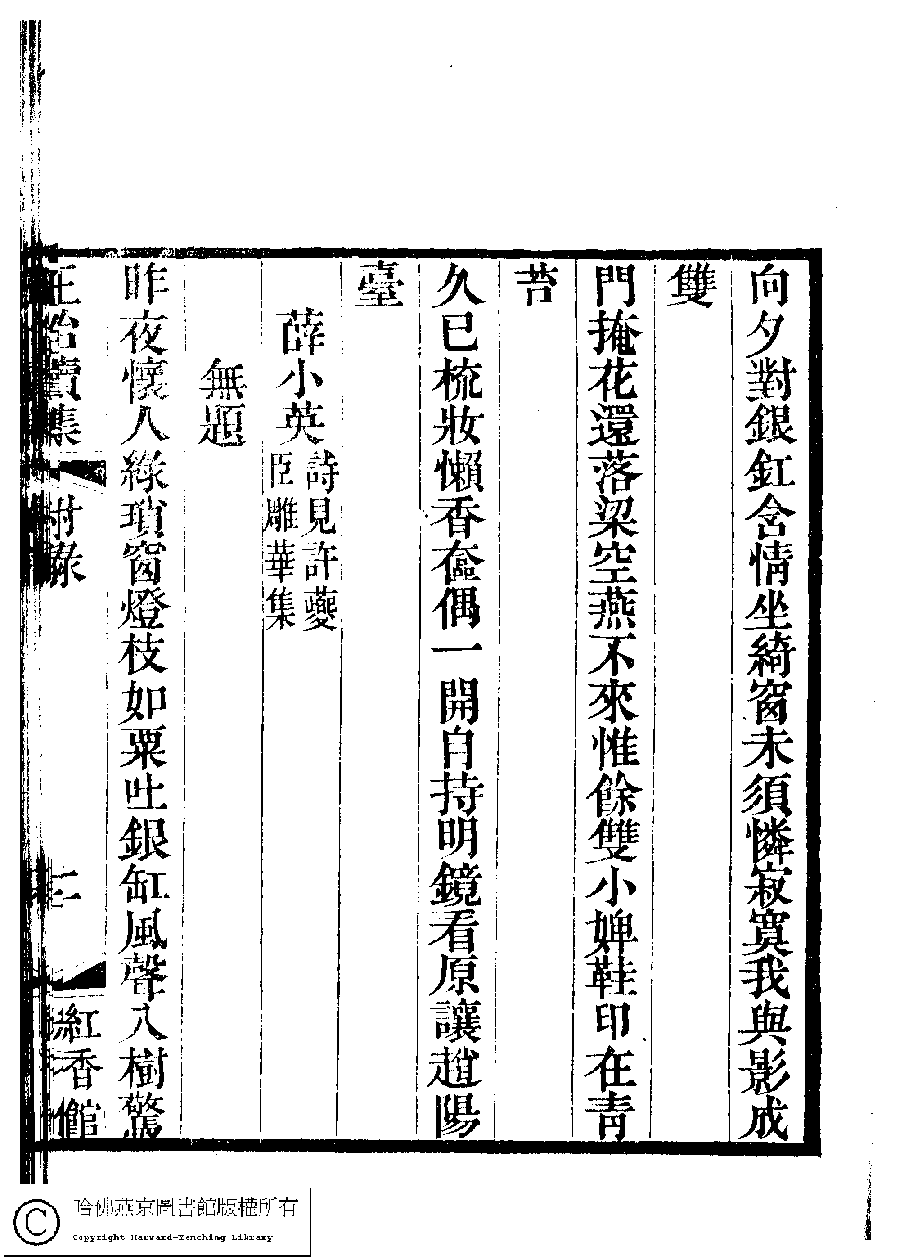 向夕對銀釭含情坐綺窗未須憐寂寞我與影成
雙
門掩花還落梁空燕不來惟餘雙小婢鞋印在青
苔
久已梳妝懶香奩偶一開自持明鏡看原讓趙陽
臺
薛小英詩見許夔
臣雕華集
無題
昨夜懷人綠瑣窗燈枝如粟吐銀缸風聲入樹驚
正始續集
附錄
紅香館
哈佛燕京圖書館版權所有
Copyright Harvard-Yenching Library